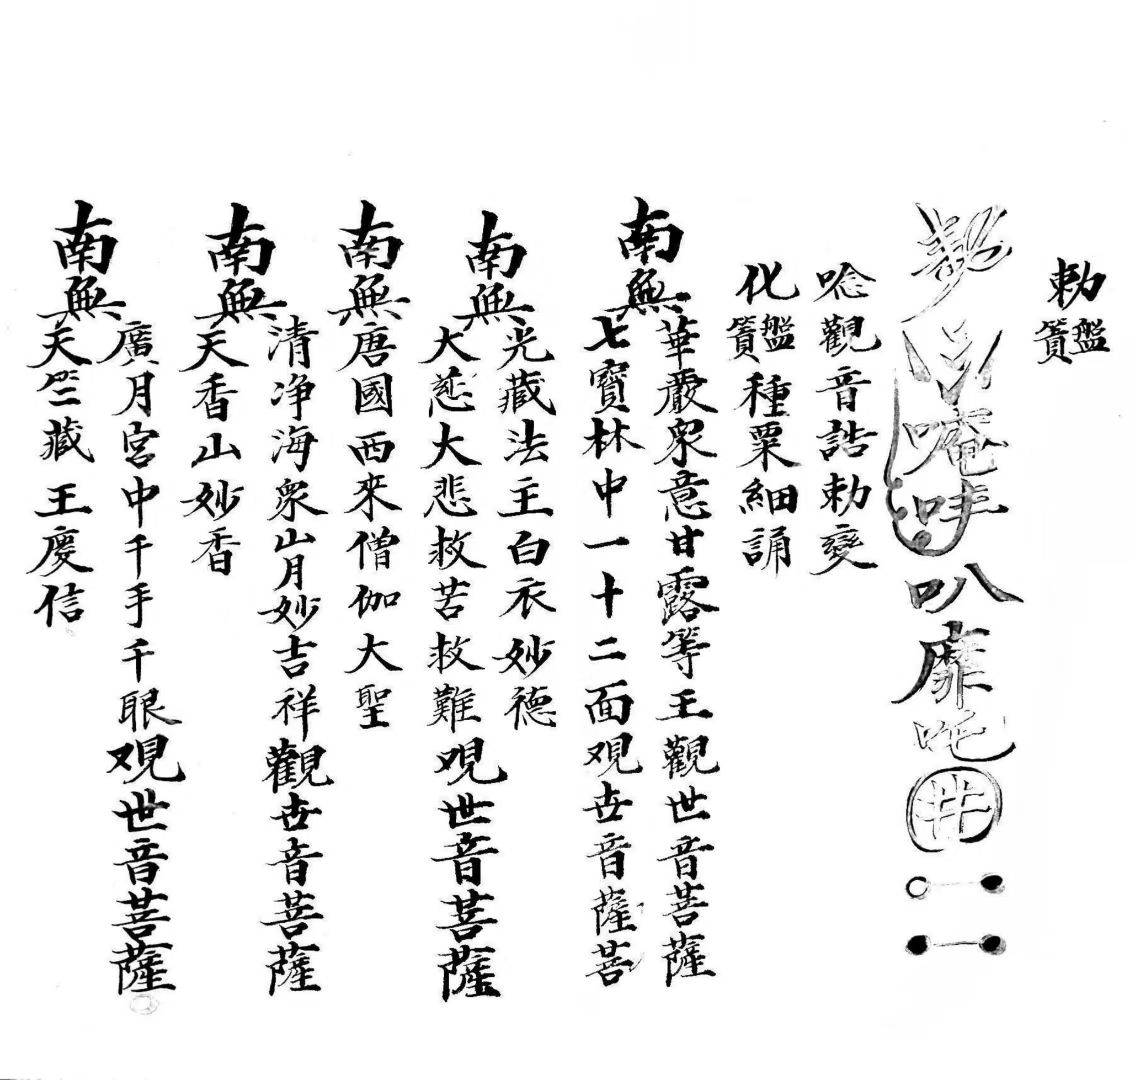 勅簀盤
唵哇叭靡吽
唸觀音誥勅變
化簀盤種粟細誦
南無
華嚴衆意甘露等王觀世音菩薩
七寶林中一十二面观世音薩菩
南無
光藏法主白衣妙德
大慈大悲救苦救難观世音菩薩
南無唐國西來僧伽大聖
南無
清净海衆山月妙吉祥觀世音菩薩
天香山妙香
南無
廣月宮中千手千眼观世音菩薩
天竺藏王慶信